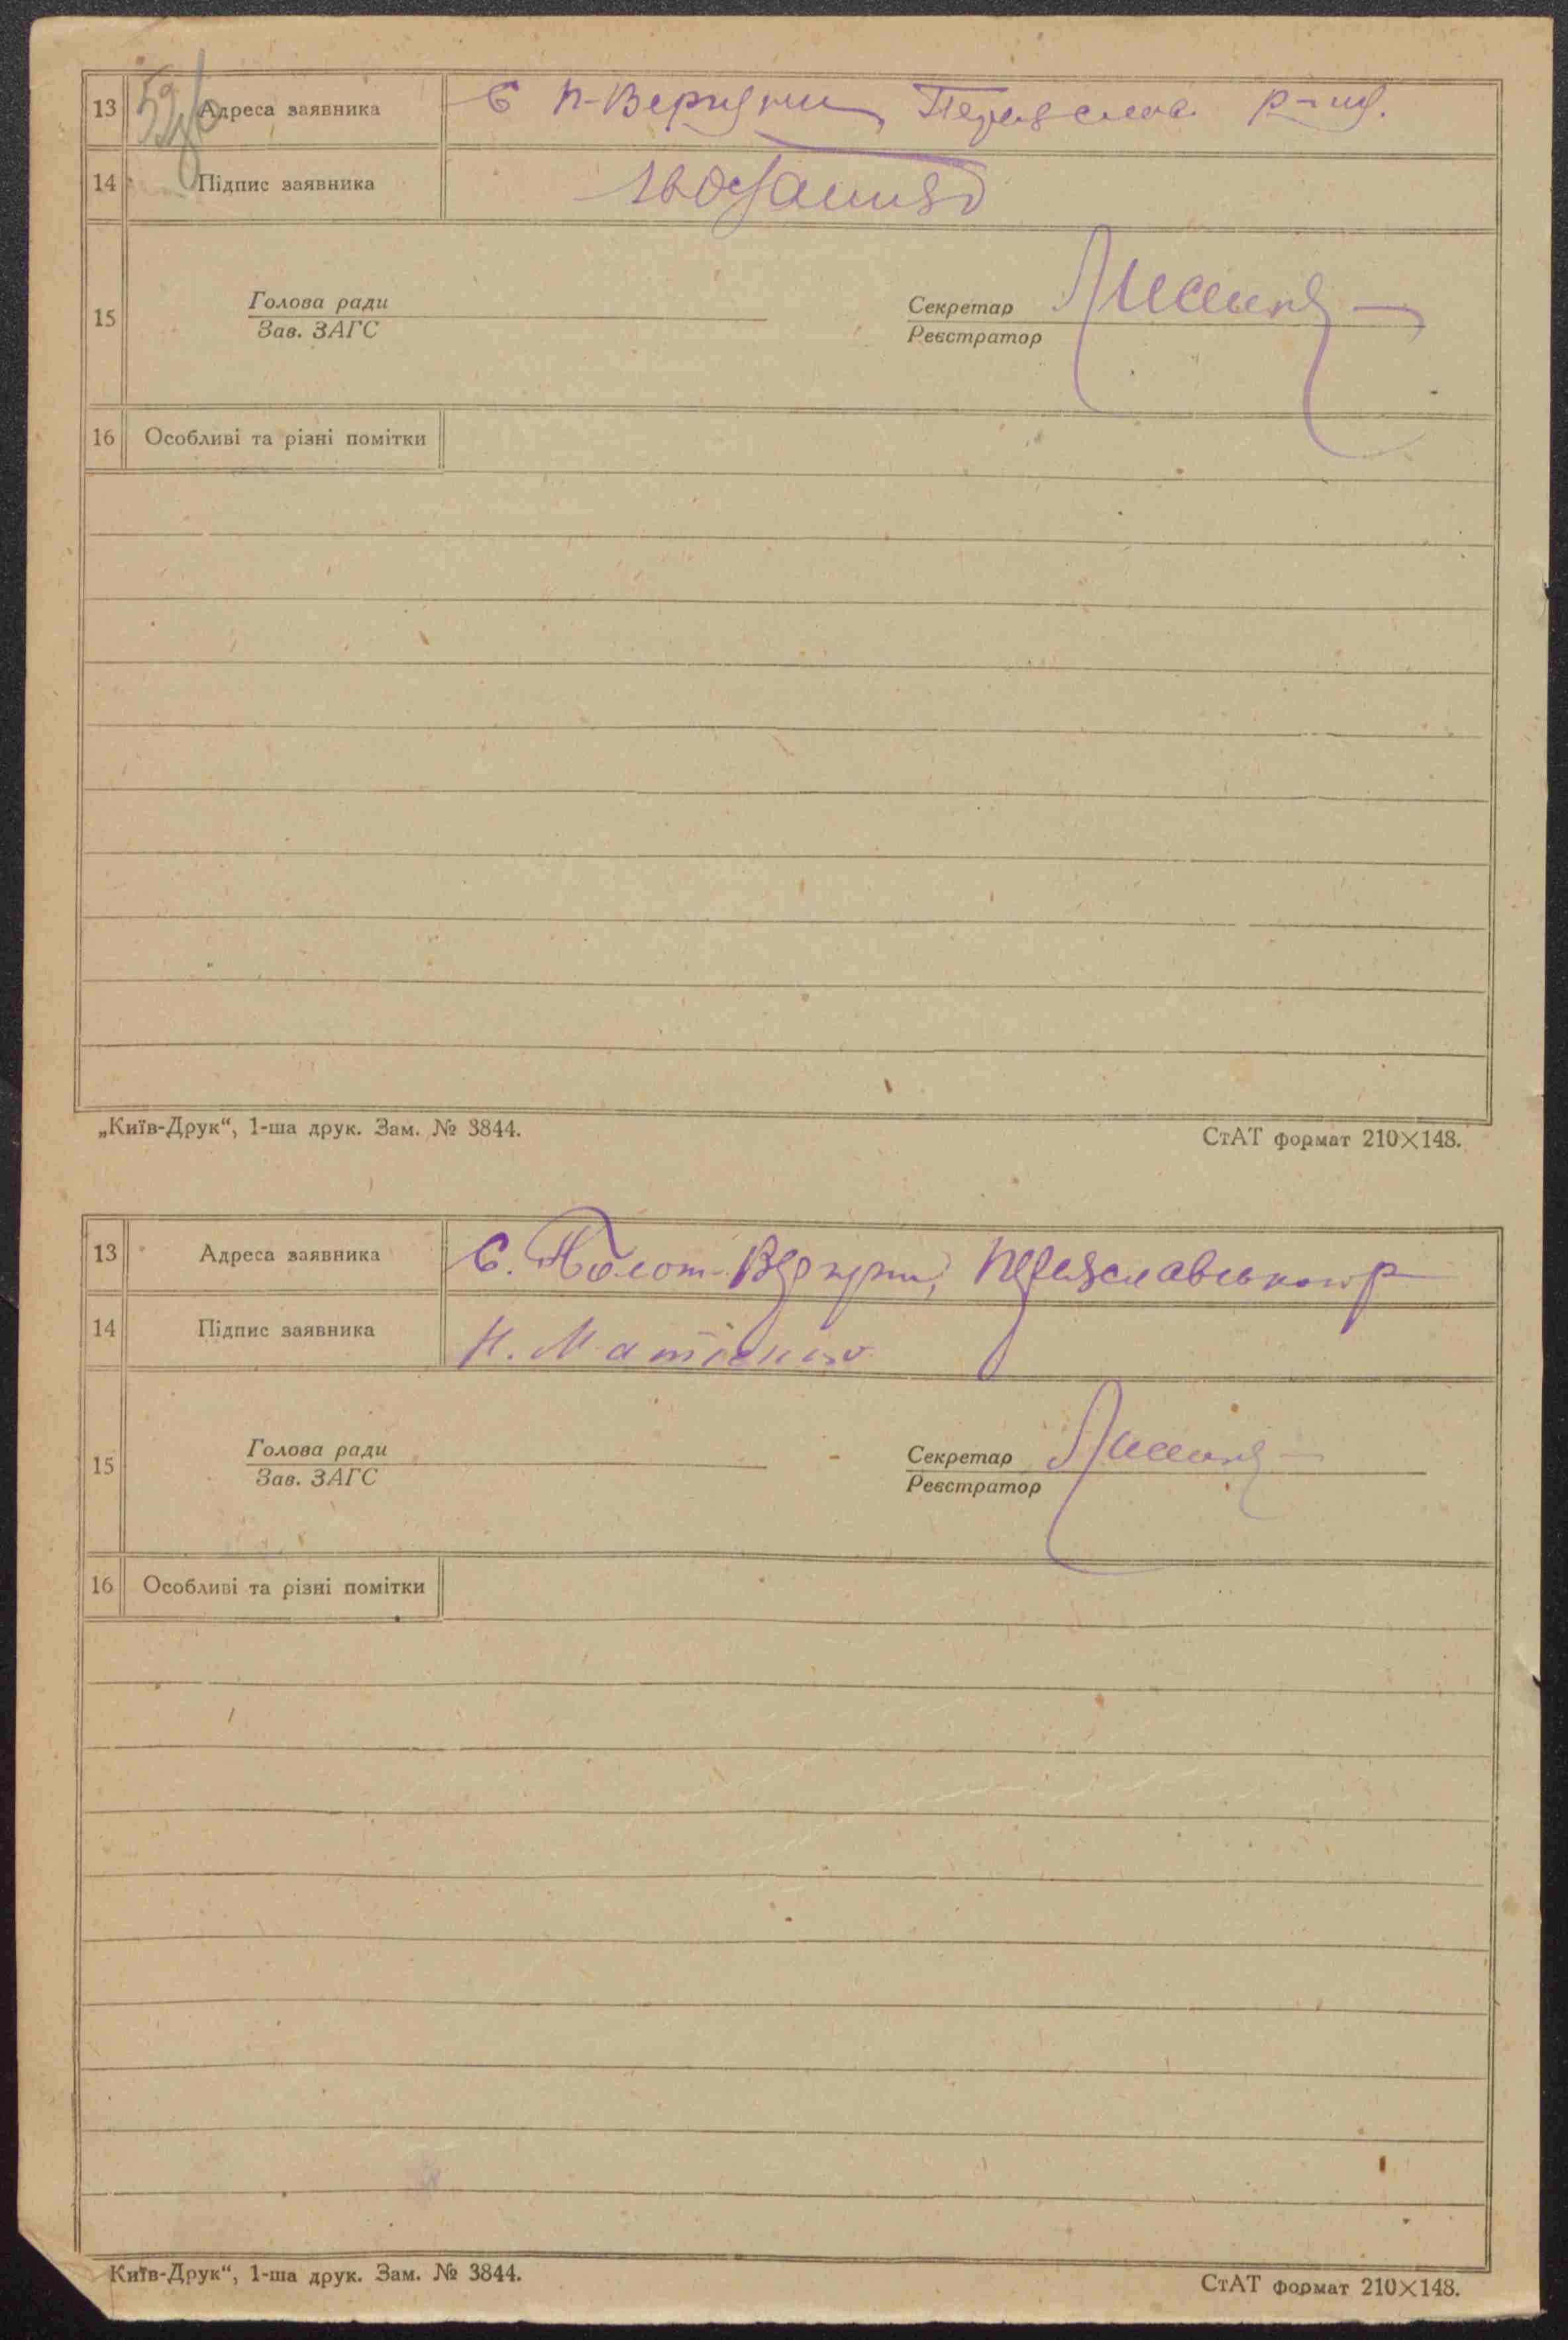 13 Адреса заявника С П-Вергуни, Переяслав. р-ну.
14 Підпис заявника
15 Голова ради Секретар
Зав. ЗАГС Реєстратор
16 Особливі та різні помітки
„Київ-Друк“, 1-ша друк. Зам. № 3844. СтАТ формат 210×148.
13 Адреса заявника С. Полот-Вергуни, Переяславського р
14 Підпис заявника Н. Матієнко
15 Голова ради Секретар
Зав. ЗАГС Реєстратор
16 Особливі та різні помітки
Київ-Друк“, 1-ша друк. Зам. № 3844. СтАТ формат 210×148.